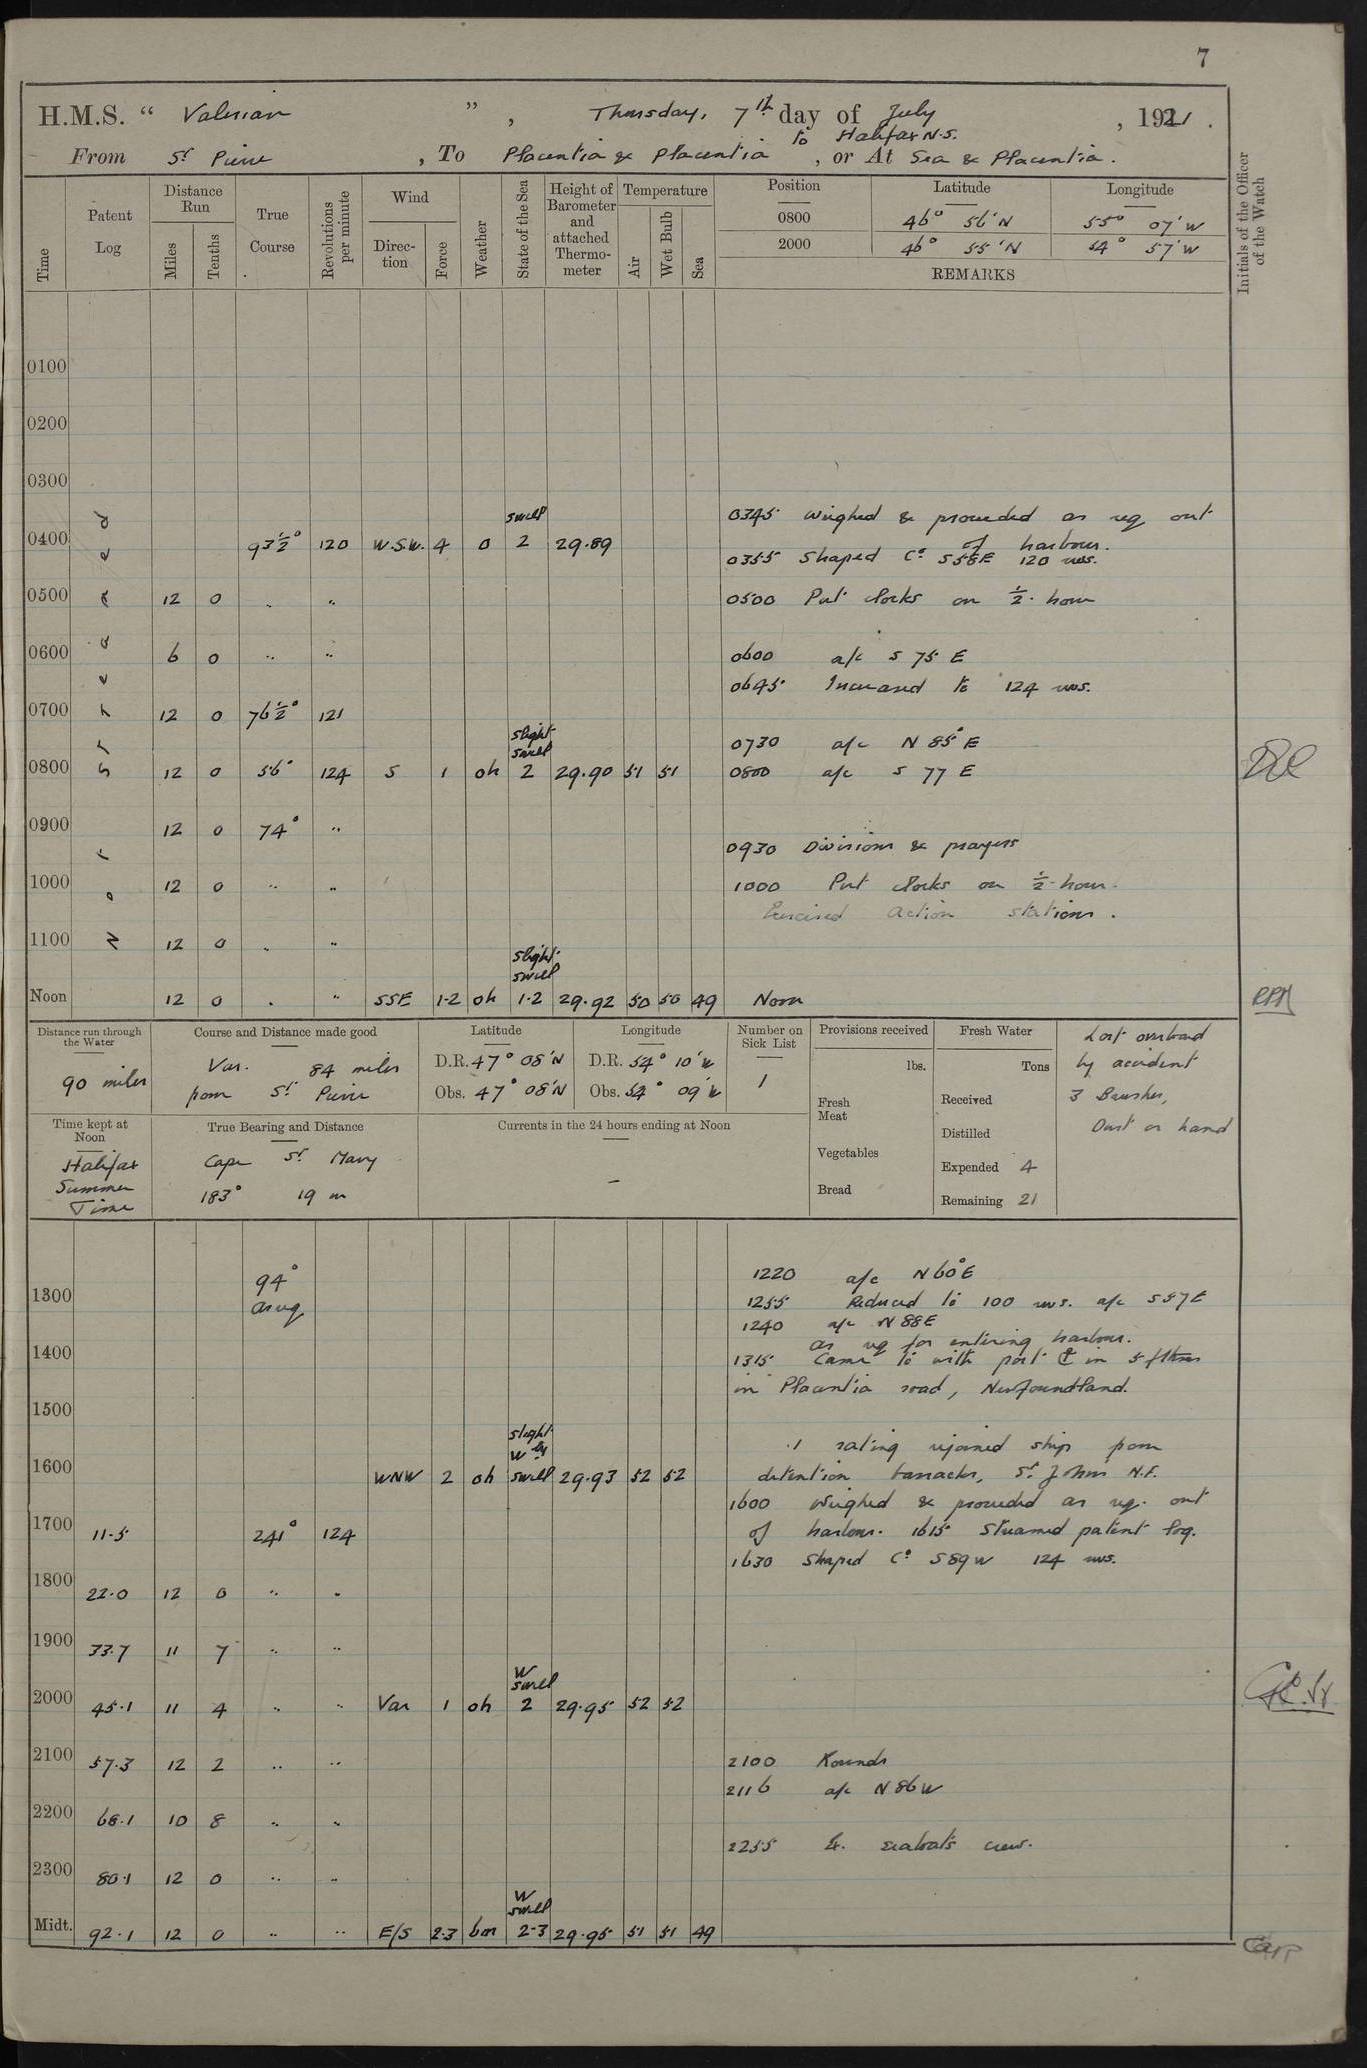 7
H.M.S. " Valerian " , Thursday, 7th day of July , 1921 .
From St Pierre , To Placentia & Placentia to Halifax N.S. , or At Sea & Placentia .
Time
Patent Log
Distance Run
Miles
Tenths
True Course
Revolutions per minute
Wind
Direction
Force
Weather
State of the Sea
Height of Barometer and attached Thermometer
Temperature
Air
Wet Bulb
Sea
Position Latitude Longitude
0800 46° 56'N 55° 07'W
2000 46° 55'N 54° 57'W
REMARKS
Initials of the Officer of the Watch
0100
0200
0300
Not Streamed
0345 Weighed & proceeded as req out of harbour.
0400 93½° 120 W.S.W. 4 o swell 2 29.89
0355 Shaped Co S58E 120 revs.
0500 12 0 .. .. 0500 Put clocks on ½ hour
0600 6 0 .. .. 0600 a/c S 75 E
0645 Increased to 124 revs.
0700 12 0 76½° 121
0730 a/c N 85° E
0800 12 0 56° 124 S 1 oh slight swell 2 29.90 51 51 0800 a/c S 77 E
0900 12 0 74° ..
0930 Divisions & prayers
1000 12 0 .. .. 1000 Put clocks on ½ hour.
Exercised Action stations .
1100 12 0 .. ..
Noon 12 0 . .. SSE 1-2 oh slight swell 1-2 29.92 50 50 49 Noon
Distance run through the Water
90 miles
Course and Distance made good
Var. 84 miles
from St Pierre
Latitude
D.R. 47° 08'N
Obs. 47° 08'N
Longitude
D.R. 54° 10'W
Obs. 54° 09'W
Number on Sick List
1
Provisions received
lbs.
Fresh Meat
Vegetables
Bread
Fresh Water
Tons
Received
Distilled
Expended 4
Remaining 21
Lost overboard
by accident
3 Brushes,
Dust or hand
Time kept at Noon
Halifax
Summer
Time
True Bearing and Distance
Cape St Mary
183° 19 m
Currents in the 24 hours ending at Noon
—
1220 a/c N60°E
1300 94° as req
1255 Reduced to 100 revs. a/c S57E
1240 a/c N 88E
as req for entering harbour.
1400
1315 Came to with port in 5 fthms
in Placentia road, Newfoundland.
1500
1 rating rejoined ship from
1600 WNW 2 oh slight W'ly swell 29.93 52 52 detention barracks, St Johns N.F.
1600 Weighed & proceeded as req. out
1700 11.5 241° 124 of harbour. 1615 Streamed patent log.
1630 Shaped Co S89W 124 revs.
1800 22.0 12 0 .. ..
1900 33.7 11 7 .. ..
2000 45.1 11 4 .. .. Var 1 oh W swell 2 29.95 52 52
2100 57.3 12 2 .. .. 2100 Rounds
2116 a/c N86W
2200 68.1 10 8 .. ..
2255 Ex. seaboats crew.
2300 80.1 12 0 .. ..
Midt. 92.1 12 0 .. .. E/S 2.3 bm W swell 2-3 29.95 51 51 49